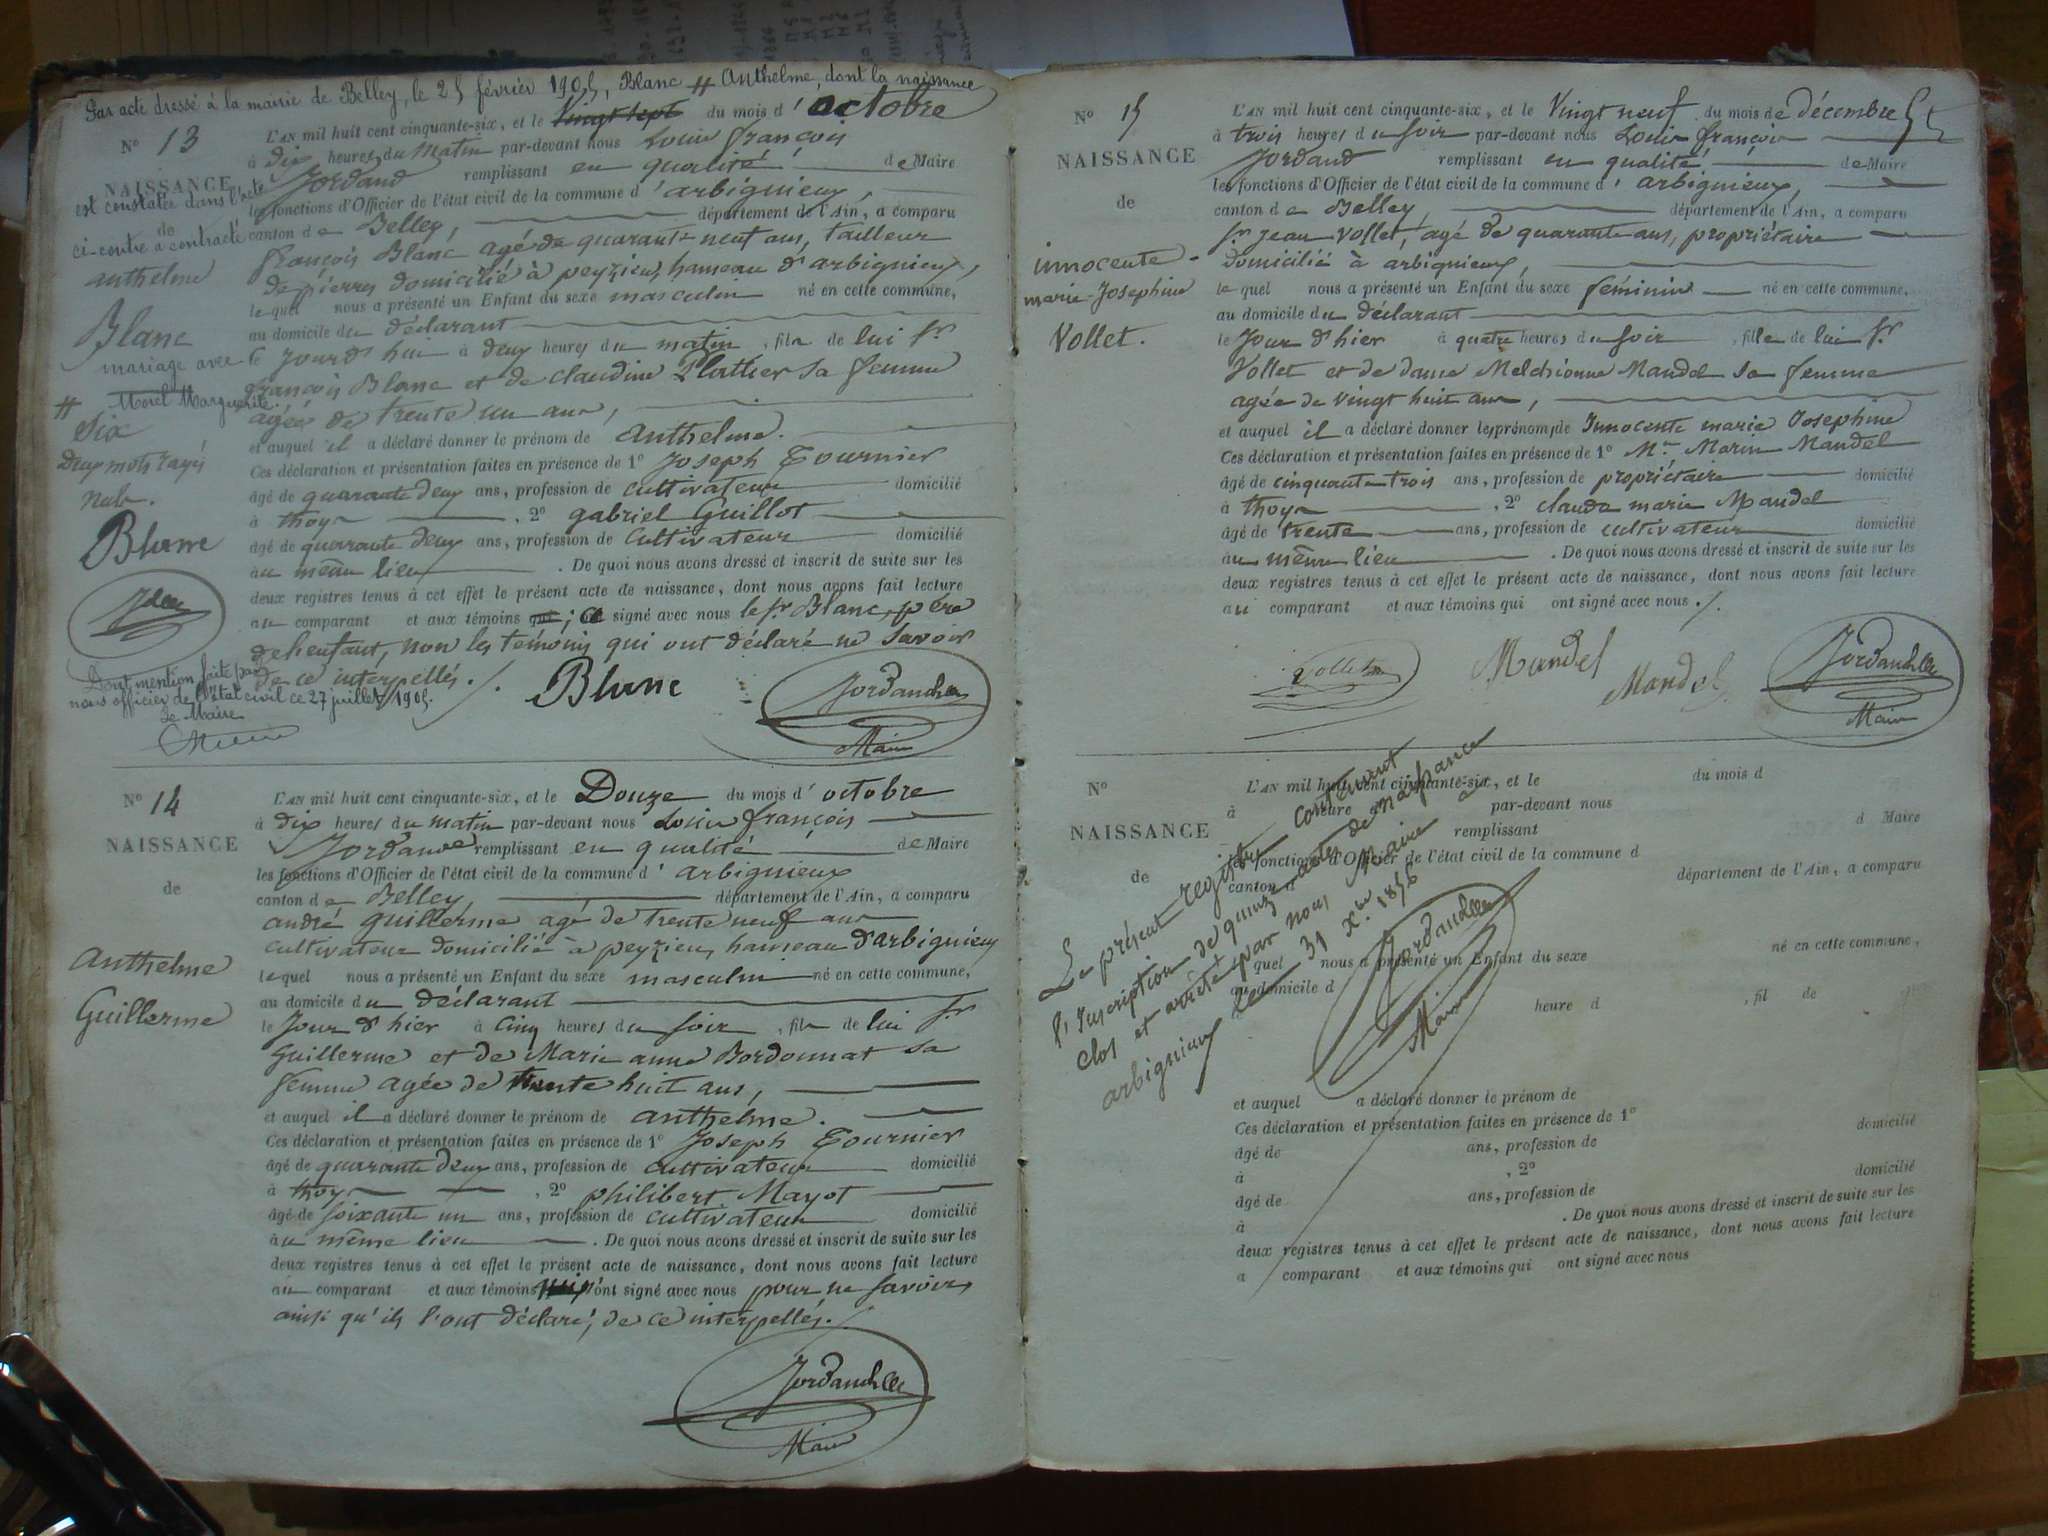 Par acte dressé à la mairie de Belley, le 25 février 1905, Blanc # Anthelme, dont la naissance
N° 13
NAISSANCE
est constatée dans l'acte
de
ci-contre a contracté
anthelme
Blanc
mariage avec
Morel Marguerite.
# Six
Deux mots rayés
nuls.
Blanc
Dont mention faite par
nous officier de l'état civil ce 27 juillet 1905.
Le Maire
L'AN mil huit cent cinquante-six, et le Vingt sept du mois d'octobre
à dix heures du Matin par-devant nous Louis françois
Jordand remplissant en qualité de Maire
les fonctions d'Officier de l'état civil de la commune d'arbignieux,
canton de Belley, département de l'Ain, a comparu
françois Blanc agé de quarante neuf ans, tailleur
de pierres domicilié à peyzieu, hameau d'arbignieux,
lequel nous a présenté un Enfant du sexe masculin né en cette commune,
au domicile du déclarant
le Jour d'hui à deux heures du matin, fils de lui Sr
françois Blanc et de claudine Plattier sa femme
agée de trente un ans,
et auquel il a déclaré donner le prénom de anthelme.
Ces déclaration et présentation faites en présence de 1° Joseph Tournier
âgé de quarante deux ans, profession de cultivateur domicilié
à thoys, 2° gabriel Guillot
âgé de quarante deux ans, profession de Cultivateur domicilié
au même lieu. De quoi nous avons dressé et inscrit de suite sur les
deux registres tenus à cet effet le présent acte de naissance, dont nous avons fait lecture
au comparant et aux témoins qui; a signé avec nous le Sr Blanc, père
de l'enfant, non les témoins qui ont déclaré ne savoir
de ce interpellés./.
Blanc
Maire
N° 14
NAISSANCE
de
Anthelme
Guillerme
L'AN mil huit cent cinquante-six, et le Douze du mois d'octobre
à dix heures du matin par-devant nous Louis françois
Jordand remplissant en qualité de Maire
les fonctions d'Officier de l'état civil de la commune d'arbignieux
canton de Belley département de l'Ain, a comparu
andré Guillerme agé de trente neuf ans
cultivateur domicilié à peyzieu, hameau d'arbignieux
lequel nous a présenté un Enfant du sexe masculin né en cette commune,
au domicile du déclarant
le Jour d'hier à Cinq heures du soir, fils de lui Sr
Guillerme et de Marie anne Bordonnat sa
femme agée de trente huit ans,
et auquel il a déclaré donner le prénom de anthelme.
Ces déclaration et présentation faites en présence de 1° Joseph Tournier
âgé de quarante deux ans, profession de cultivateur domicilié
à thoys, 2° philibert Mayot
âgé de soixante un ans, profession de cultivateur domicilié
au même lieu. De quoi nous avons dressé et inscrit de suite sur les
deux registres tenus à cet effet le présent acte de naissance, dont nous avons fait lecture
au comparant et aux témoins ont signé avec nous pour ne savoir,
ainsi qu'ils l'ont déclaré, de ce interpellés./
Maire
N° 15
NAISSANCE
de
innocente
marie-Josephine
Vollet.
L'AN mil huit cent cinquante-six, et le Vingt neuf du mois de décembre
à trois heures du soir par-devant nous Louis françois
Jordand remplissant en qualité de Maire
les fonctions d'Officier de l'état civil de la commune d'arbignieux,
canton de Belley département de l'Ain, a comparu
Sr jean Vollet, agé de quarante ans, propriétaire
domicilié à arbignieux,
lequel nous a présenté un Enfant du sexe féminin né en cette commune,
au domicile du déclarant
le Jour d'hier à quatre heures du soir, fille de lui Sr
Vollet et de dame Melchionne Mandel sa femme
agée de vingt huit ans,
et auquel il a déclaré donner les prénoms de Innocente marie Josephine
Ces déclaration et présentation faites en présence de 1° Mr Marin Mandel
âgé de cinquante trois ans, profession de propriétaire domicilié
à thoys, 2° claude marie Mandel
âgé de trente ans, profession de cultivateur domicilié
au même lieu. De quoi nous avons dressé et inscrit de suite sur les
deux registres tenus à cet effet le présent acte de naissance, dont nous avons fait lecture
au comparant et aux témoins qui ont signé avec nous./.
Mandel
Mandel
Maire
N°
NAISSANCE
de
L'AN mil huit cent cinquante-six, et le du mois d
à heure d par-devant nous
remplissant d Maire
les fonctions d'Officier de l'état civil de la commune d
canton d département de l'Ain, a comparu
quel nous a présenté un Enfant du sexe né en cette commune,
au domicile d
heure d, fil de
et auquel a déclaré donner le prénom de
Ces déclaration et présentation faites en présence de 1°
âgé de ans, profession de domicilié
à, 2°
âgé de ans, profession de domicilié
à. De quoi nous avons dressé et inscrit de suite sur les
deux registres tenus à cet effet le présent acte de naissance, dont nous avons fait lecture
a comparant et aux témoins qui ont signé avec nous
Le présent registre contenant
l'Inscription de quinze actes de naissance a
clos et arrêté par nous Maire
arbignieux le 31 Xbre 1856
Maire